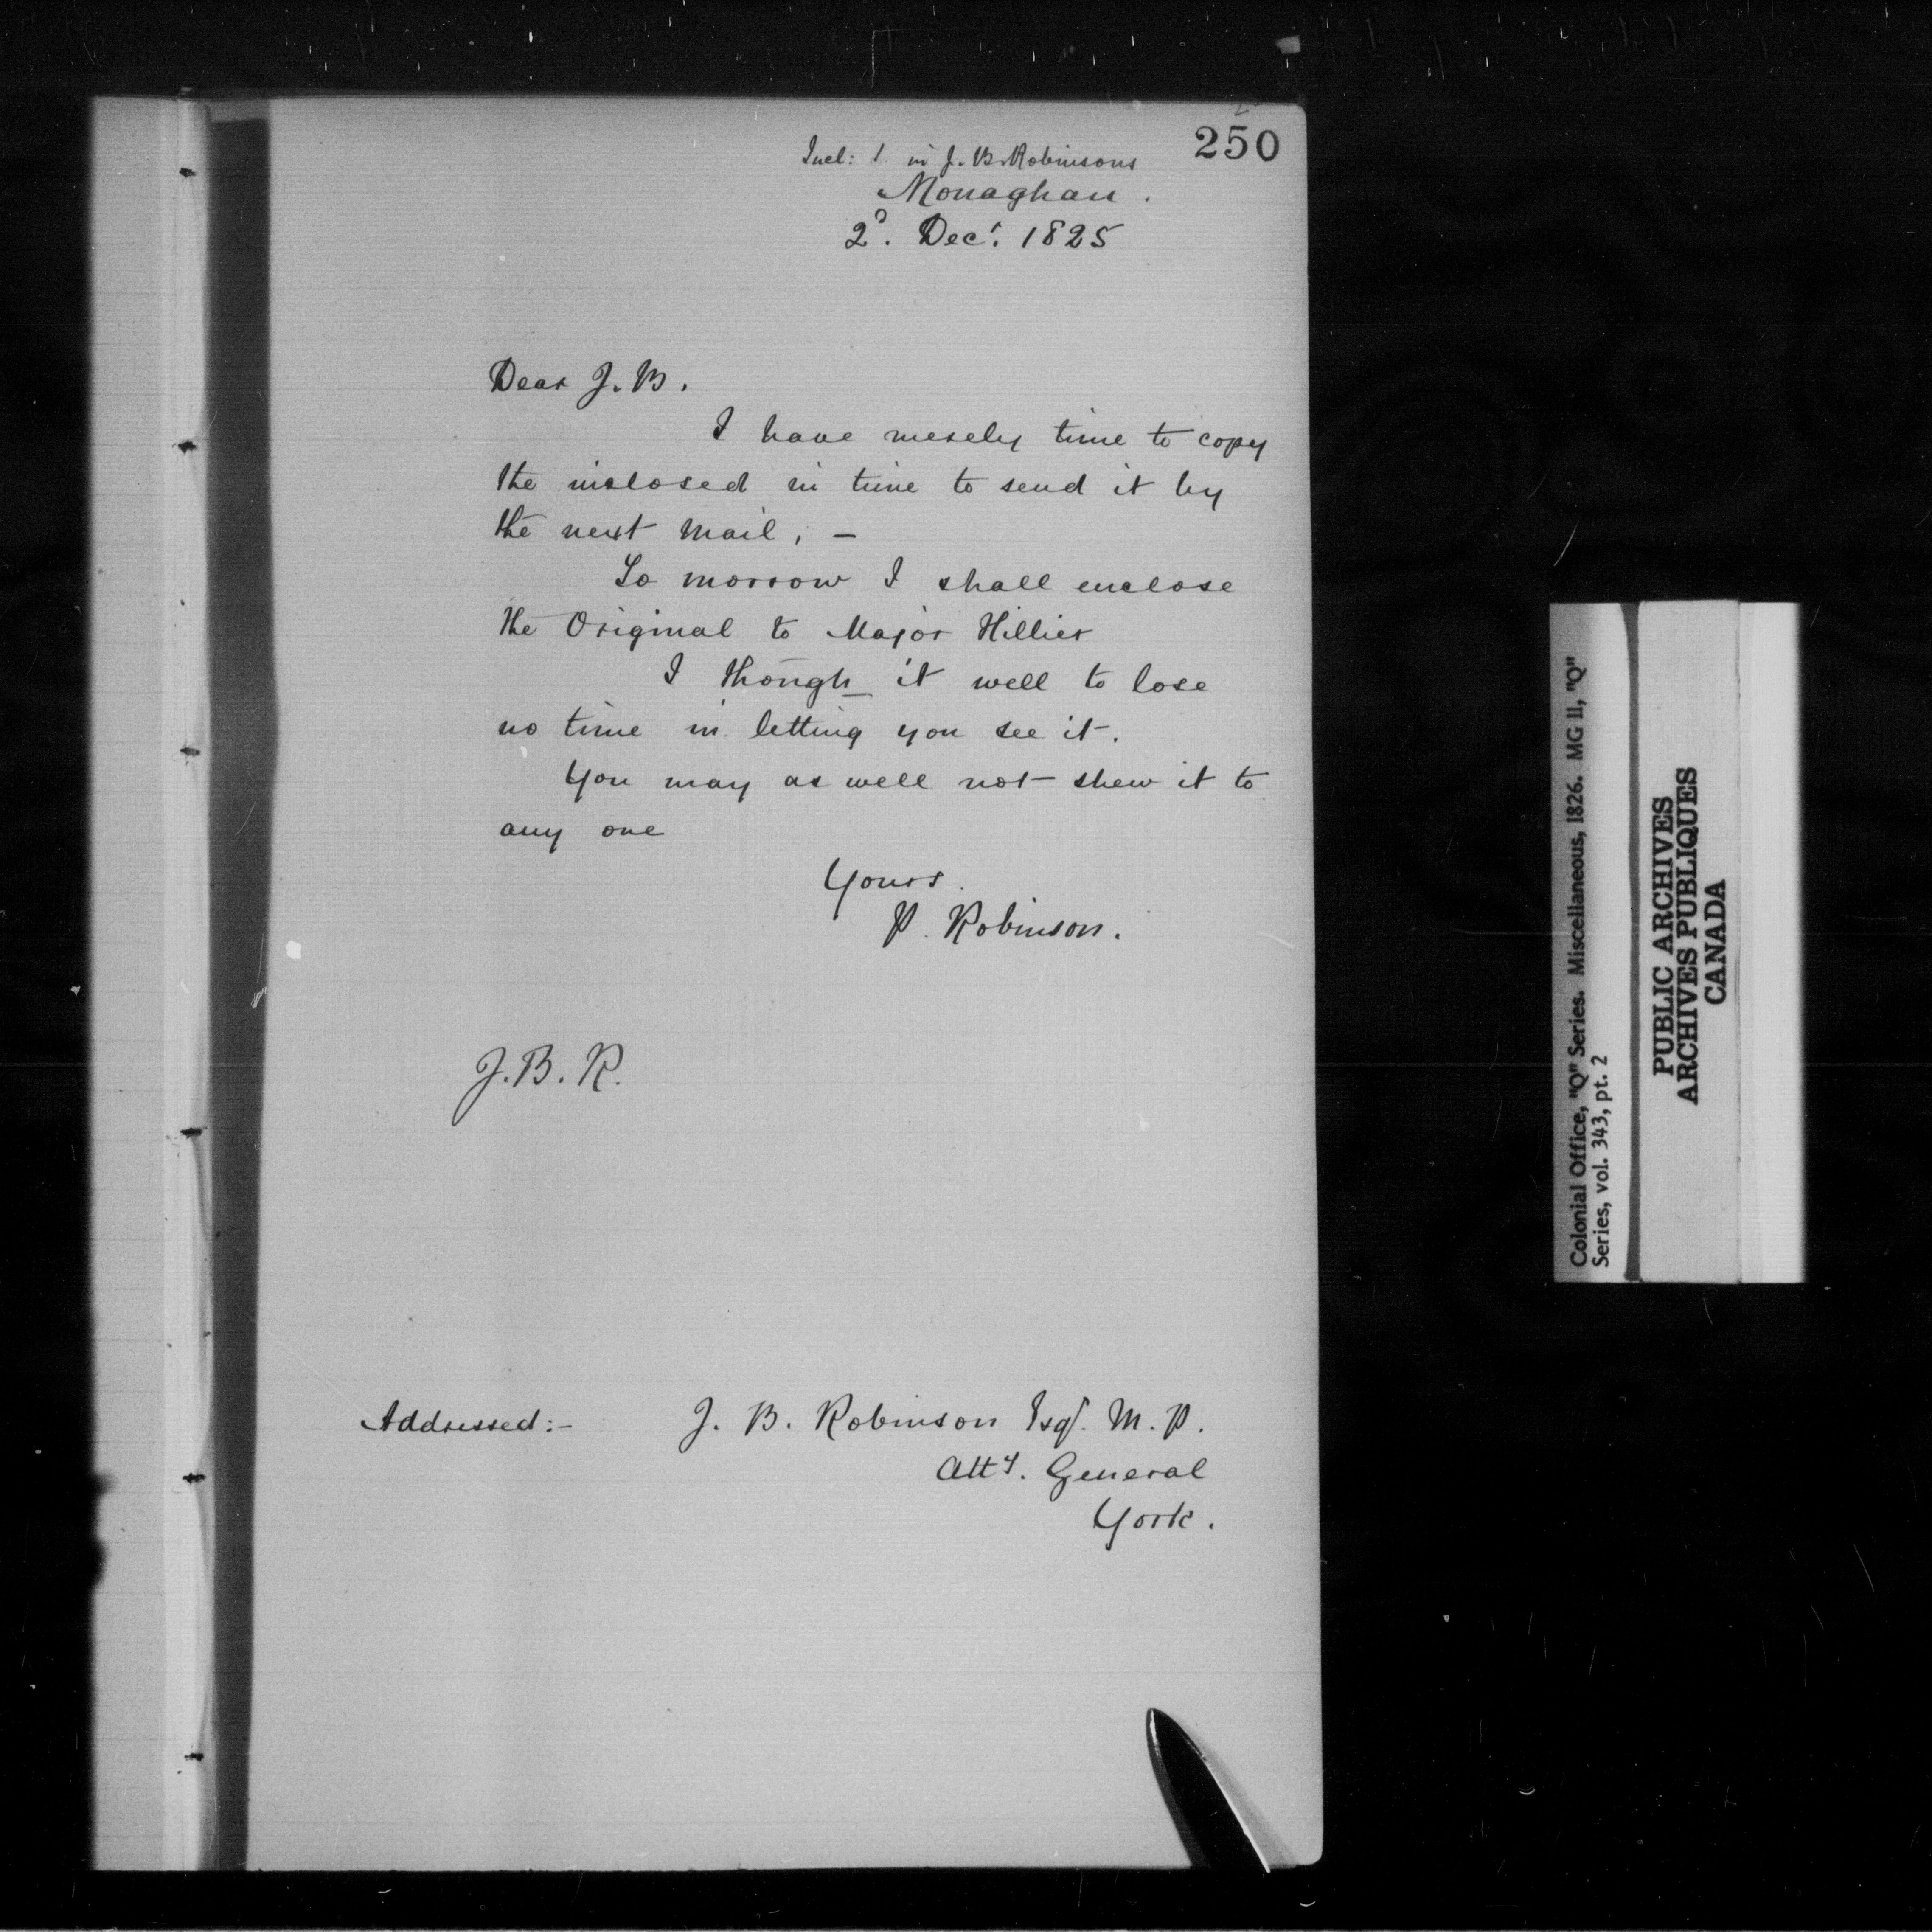 250
Incl: 1 in J. B. Robinsons
Monaghan.
2d. Decr. 1825
Dear J. B.
I have merely time to copy
the inclosed in time to send it by
the next mail, —
To morrow I shall enclose
the Original to Major Hillier
I though it well to lose
no time in letting you see it.
You may as well not shew it to
any one
Yours
P. Robinson.
J. B. R.
Addressed:- J. B. Robinson Esqr. M. P.
Atty. General
York.
Colonial Office, "Q" Series. Miscellaneous, 1826. MG 11, "Q"
Series, vol. 343, pt. 2
PUBLIC ARCHIVES
ARCHIVES PUBLIQUES
CANADA